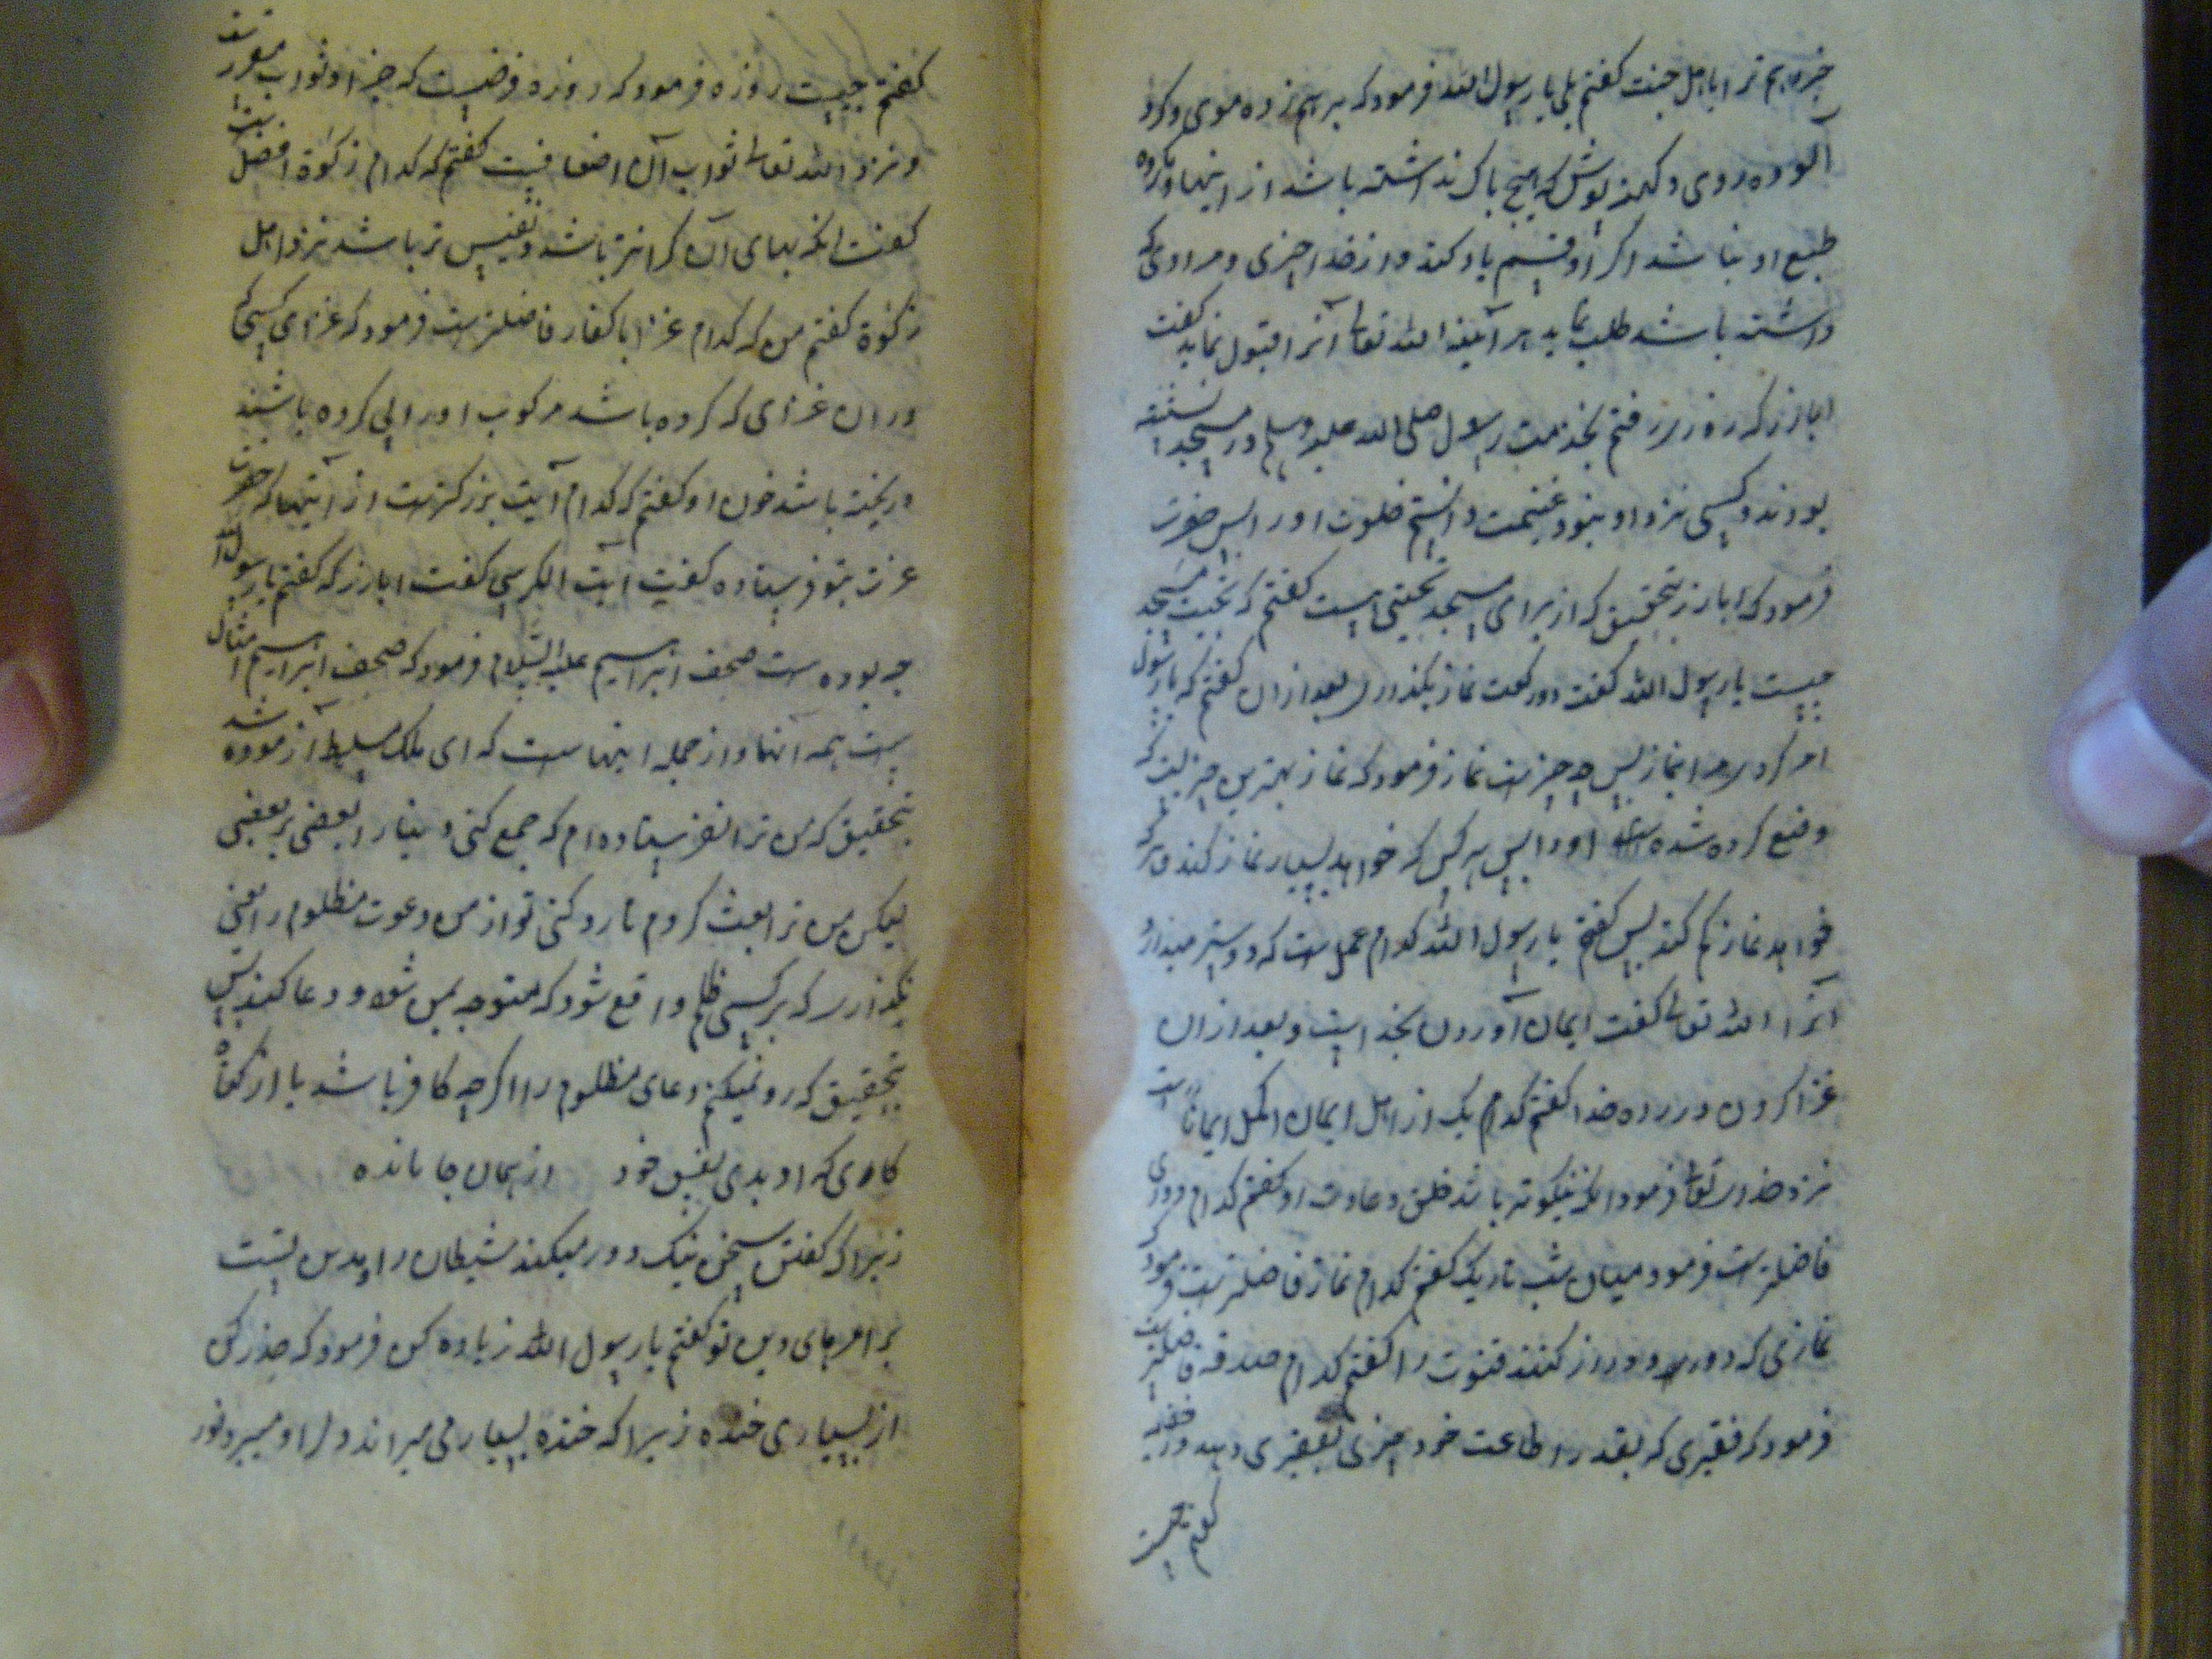 خبر دهم ترا باهل جنت کفتم بلی یا رسول الله فرمود که برهم زده موی و کرد
آلوده روی و کهنه پوش که هیچ باک نداشته باشد از اینها و کرده
طبع او نباشد اکر او قسم یاد کند و از خدا چیزی و مرادی که
داشته باشد طلب نماید هر آینه الله تعالی آنرا قبول نماید کفت
ابازر که روزی رفتم بخدمت رسول صلی الله علیه وسلم در مسجد نشسته
بودند و کسی نزد او نبود غنیمت دانستم خلوت او را پس حضرت
فرمود که ابازر بتحقیق که از برای مسجد تحیتی هست کفتم که تحیت مسجد
چیست یا رسول الله کفت دو رکعت نماز بکذاری بعد از آن کفتم که یا رسول
امر کردی مرا بنماز پس چه چیزست نماز فرمود که نماز بهترین چیزیست که
وضع کرده شده است او را پس هر کس که خواهد بسیار نماز کند و هر که
خواهد نماز کم کند پس کفتم یا رسول الله کدام عمل ست که دوستر میدارد
آنرا الله تعالی کفت ایمان آوردن بخداست و بعد از آن
غزا کردن در راه خدا کفتم کدام یک از اهل ایمان اکمل ایمانا ست
نزد خدای تعالی فرمود انکه نیکوتر باشد خلق و عادت او کفتم کدام
فاضلترست فرمود میان شب تاریک کفتم کدام نماز فاضلترست فرمود که
نمازی که دور و دراز کنند قنوت را کفتم کدام صدقه فاضلترست
فرمود که فقیری که بقدر اطاعت خود چیزی بفقیری دهد در خفیه
کفتم چیست
کفتم چیست روزه فرمود که روزه فرضیست که جزا و ثواب
و نزد الله تعالی ثواب آن اضعافیست کفتم که کدام زکوة افضلست
کفت انکه بهای آن کرانتر باشد و نفیس تر باشد نزد اهل
زکوة کفتم من که کدام غزا با کفار فاضلترست فرمود که غزای کسی که
در آن غزای که کرده باشد مرکوب او را پی کرده باشند
و ریخته باشد خون او کفتم که کدام آیت بزرکترست از آیتها که حضرت
عزت بتو فرستاده کفت آیت الکرسی کفت ابازر که کفتم یا رسول الله
چه بوده ست صحف ابراهیم علیه السلام فرمود که صحف ابراهیم امثال
ست همه آنها و از جمله اینهاست که ای ملک مسلط آزموده شده
بتحقیق که من ترا نفرستاده ام که جمع کنی دینار را بعضی بر بعضی
لیکن من ترا بعث کردم تا رد کنی تو از من دعوت مظلوم را یعنی
نکذاری که بر کسی ظلم واقع شود که متوجه بمن شود و دعا کند پس
بتحقیق که رد نمیکنم دعای مظلوم را اکرچه کافر باشد
کاهی که او بدی بنفس خود از همان جا مانده
زیرا که کفتن سخن نیک دور میکند شیطان را
بر امرهای دین تو کفتم یا رسول الله زیاده کن فرمود که حذر کن
از بسیاری خنده زیرا که خنده بسیار می میراند دل را و میبرد نور